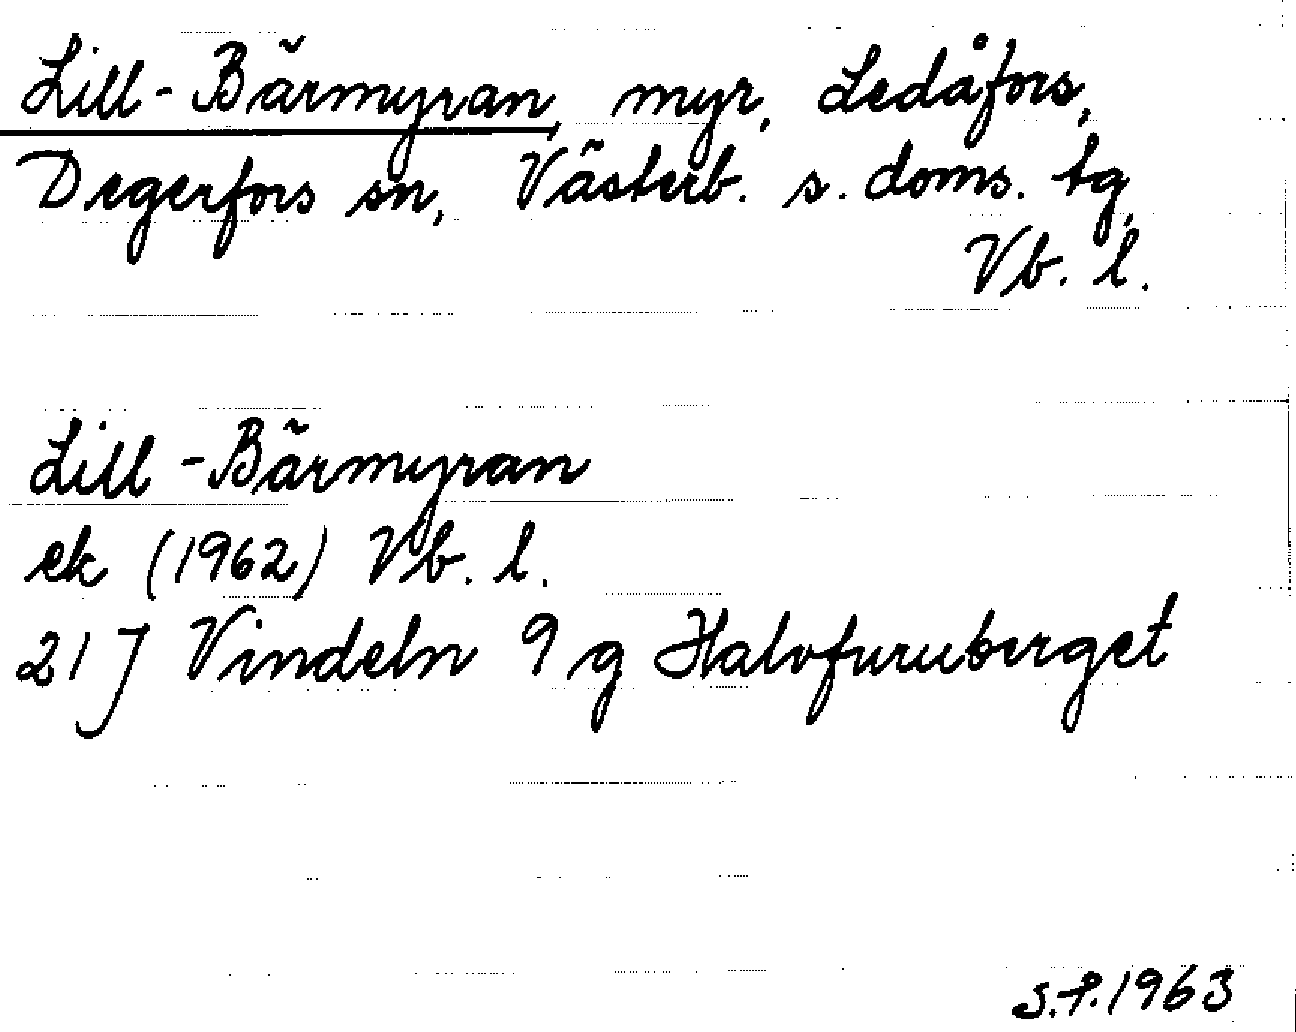 Lill-Bärmyran, myr, Ledåfors,
Degerfors sn, Västerb. s. doms. tg,
Vb. l.
Lill-Bärmyran
ek (1962) Vb. l.
21 J Vindeln 9 g Halvfuruberget
S.P. 1963